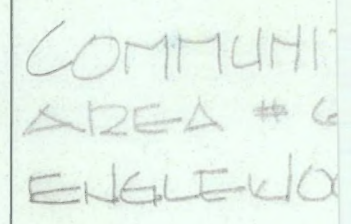 COMMUNI
AREA # 6
ENGLEWOO